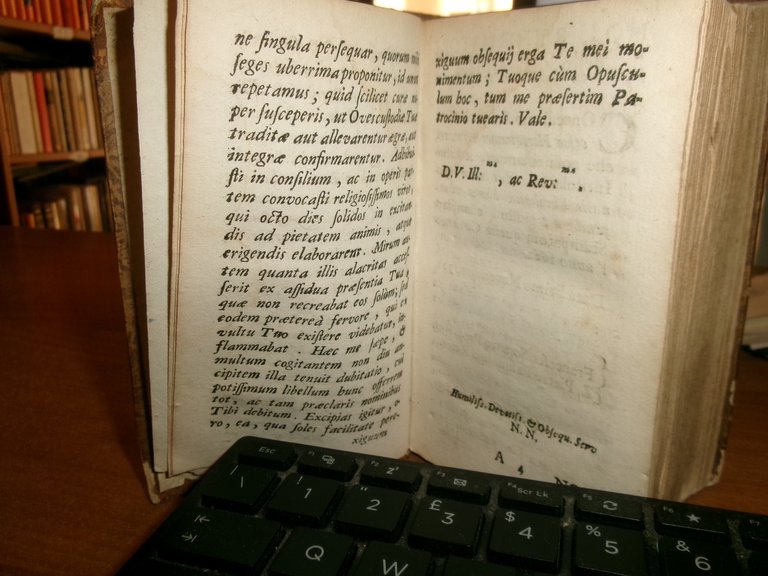 ne ſingula perſequar, quorum
ſeges uberrima proponitur, id
repetamus; quid ſcilicet curæ
per ſuſceperis, ut Oves cuſtodiæ Tuæ
traditæ aut allevarentur ægræ, aut
integræ confirmarentur. Adhibui-
ſti in conſilium, ac in operis par-
tem convocaſti religioſiſſimos viros,
qui octo dies ſolidos in excitan-
dis ad pietatem animis, atque
erigendis elaborarent. Mirum au-
tem quanta illis alacritas acceſ-
ſerit ex aſſidua præſentia Tua,
quæ non recreabat eos ſolùm; ſed
eodem prætereà fervore, qui in
vultu Tuo exiſtere videbatur, in-
flammabat. Hæc me ſæpe, &
multum cogitantem non diu an-
cipitem illa tenuit dubitatio, cui
potiſſimum libellum hunc offerrem
tot, ac tam præclaris nominibus
Tibi debitum. Excipias igitur, o-
ro, ea, qua ſoles facilitate pere-
xiguum
xiguum obſequij erga Te mei mo-
nimentum; Tuoque cùm Opuſcu-
lum hoc, tum me præſertim Pa-
trocinio tuearis. Vale.
D. V. Ill: mæ, ac Rev: mæ.
Humiliſs. Devotiſs. & Obſequ. Serv
N. N.
A 4
Esc F1 F2 F3 F4 Scr Lk F5 F6
\ | ! 1 " 2 £ 3 $ 4 % 5 & 6
Q W